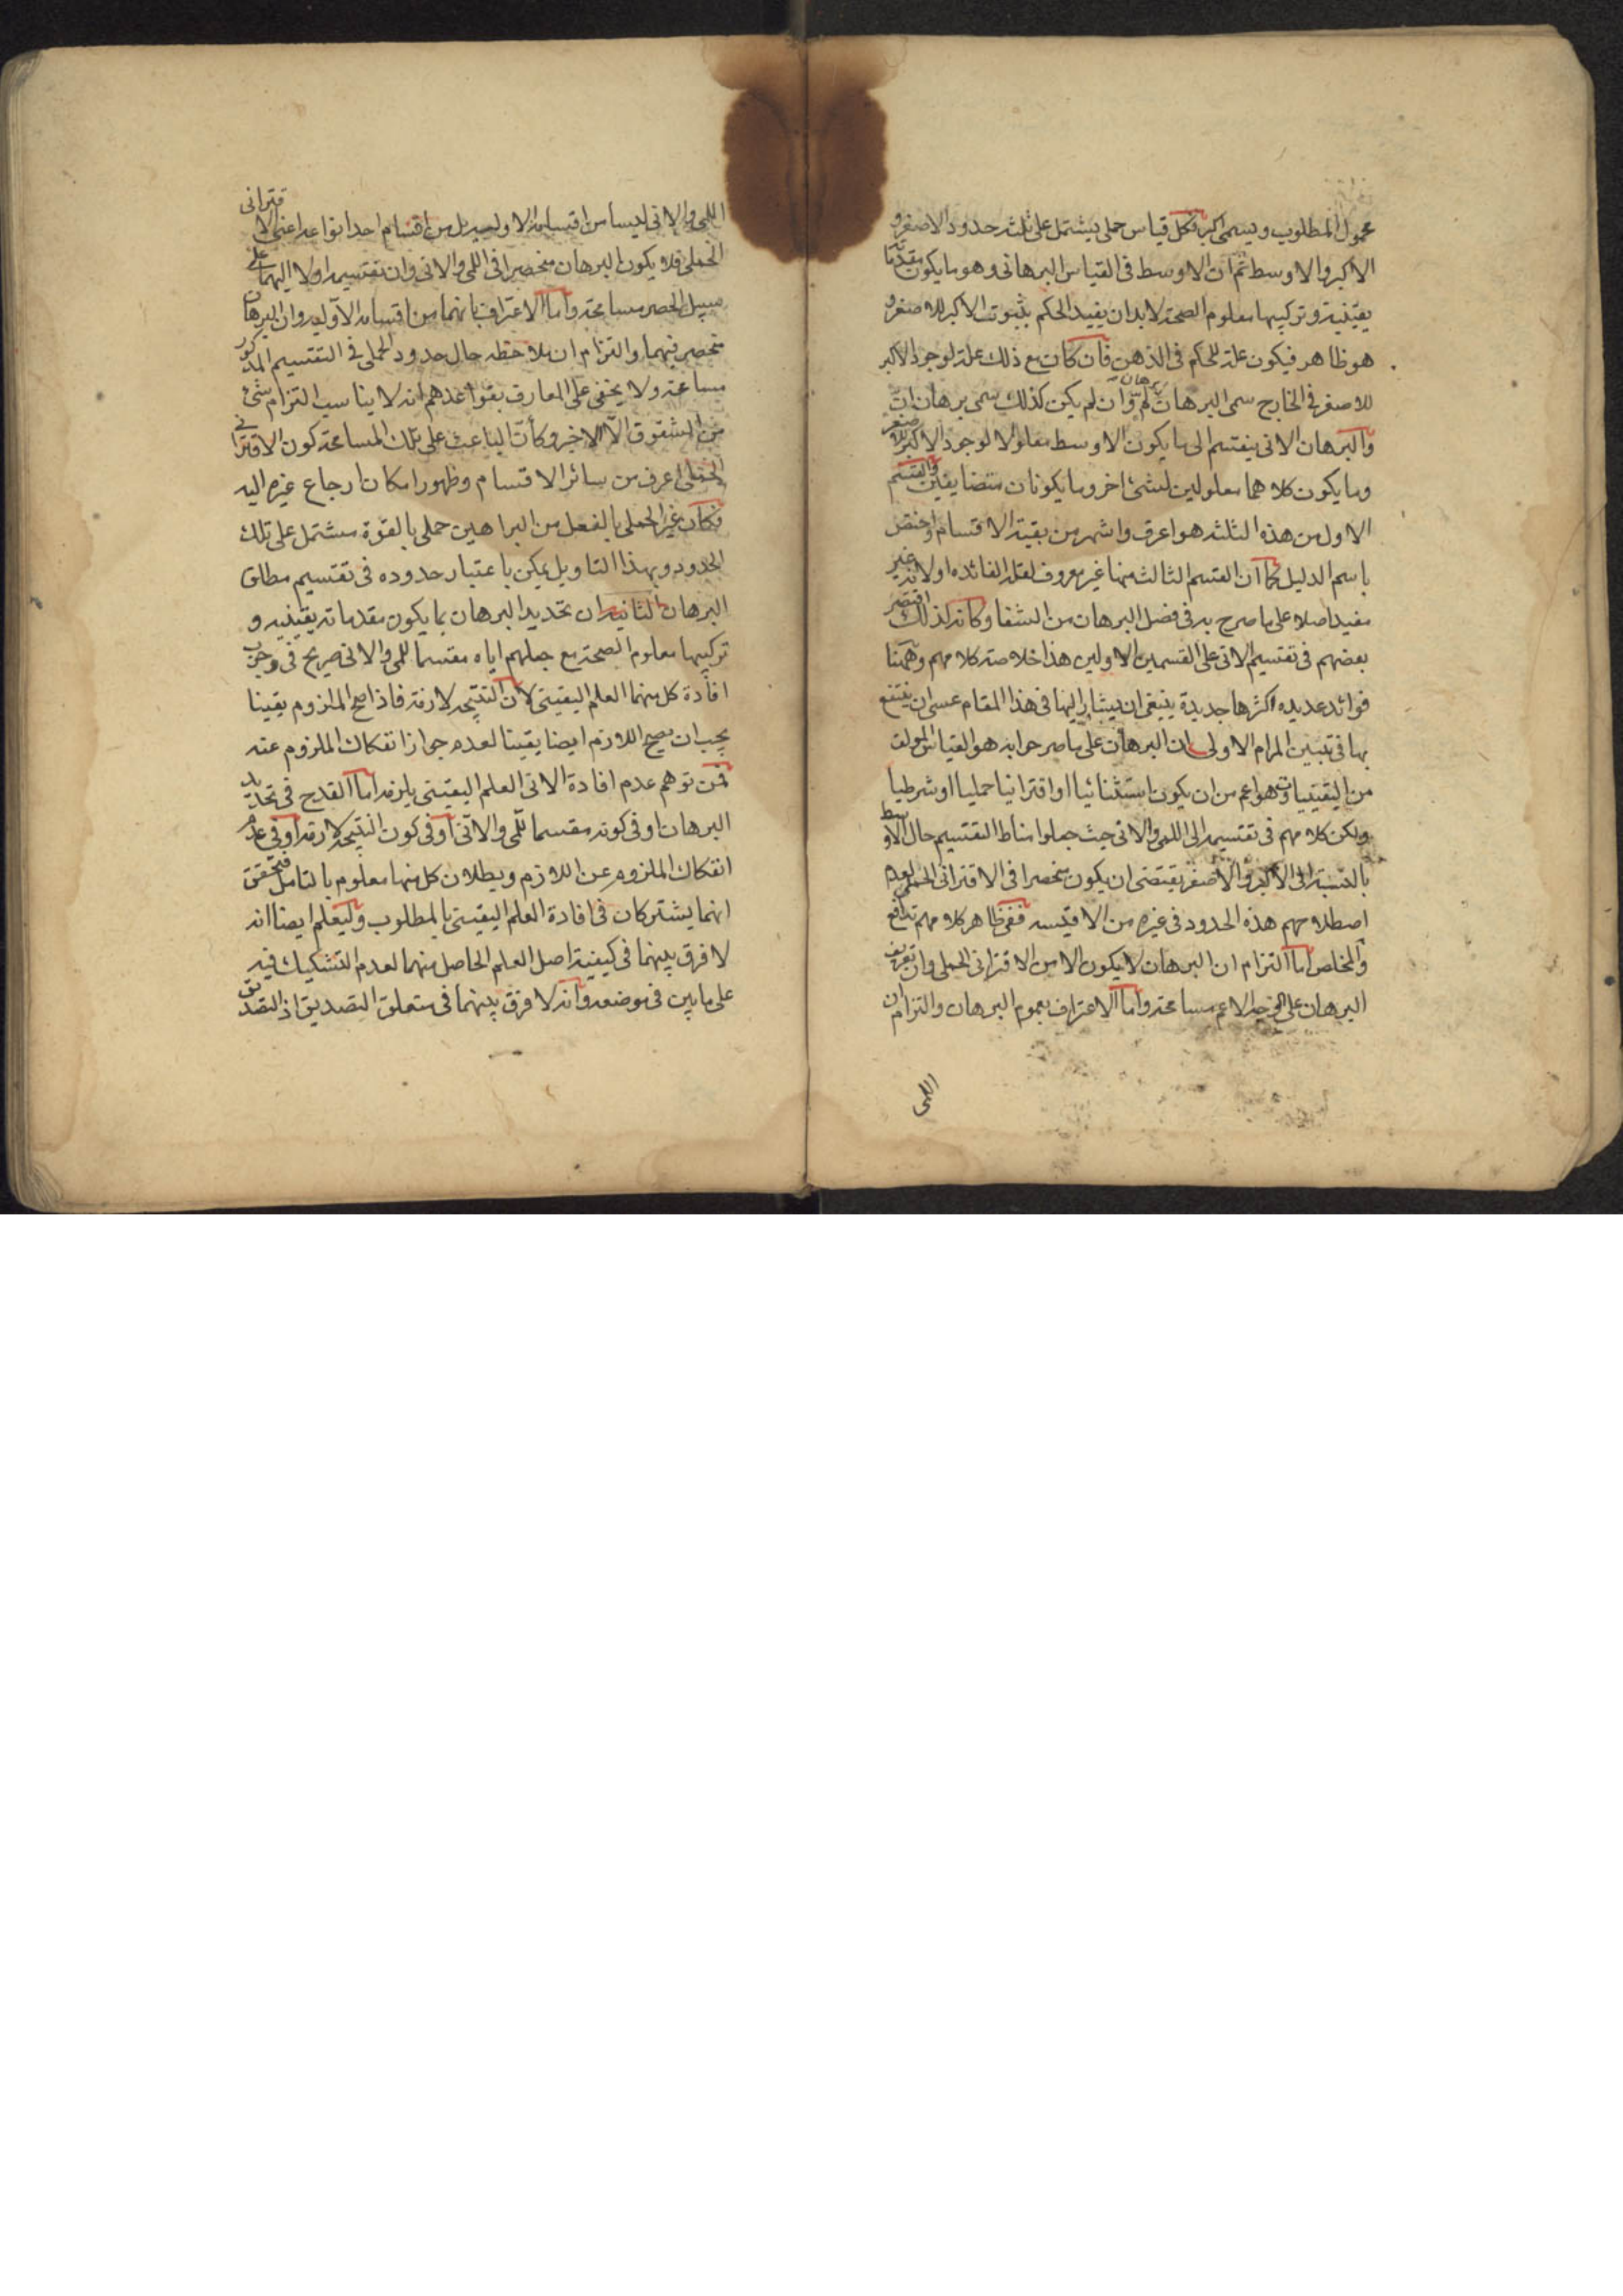 محمول المطلوب ويسمى اكبر فكل قياس حملى يشتمل على ثلثة حدود الاصغر و
الاكبر والاوسط ثم ان الاوسط فى القياس البرهانى وهو ما يكون مقدماته
يقينية وتركيبها معلوم الصحة لابد ان يفيد الحكم بثبوت الاكبر للاصغر و
هو ظاهر فيكون علة للحكم فى الذهن فان كان مع ذلك علة لوجود الاكبر
للاصغر فى الخارج سمى البرهان برهان لم وان لم يكن كذلك سمى برهان ان
والبرهان الانى ينقسم الى ما يكون الاوسط معلولا لوجود الاكبر للاصغر
وما يكون كلاهما معلولين لشئ اخر وما يكونان متضايفين والقسم
الاول من هذه الثلثة هو اعرف واشهر من بقية الاقسام واختص
باسم الدليل كما ان القسم الثالث منها غير معروف لقلة الفائده اولانه غير
مفيد اصلا على ما صرح به فى فصل البرهان من الشفا وكانه لذلك اقتصر
بعضهم فى تقسيم الانى على القسمين الاولين هذا خلاصة كلامهم وههنا
فوائد عديده اكثرها جديدة ينبغى ان يشار اليها فى هذا المقام عسى ان ينتفع
بها فى تبيين المرام الاولى ان البرهان على ما صرحوا به هو القياس المؤلف
من اليقينيات وهو اعم من ان يكون استثنائيا او اقترانيا حمليا او شرطيا
ولكن كلامهم فى تقسيمه الى اللمى والانى حيث جعلوا مناط التقسيم حال الاوسط
بالنسبة الى الاكبر والاصغر يقتضى ان يكون منحصرا فى الاقترانى الحملى لعدم
اصطلاحهم هذه الحدود فى غيره من الاقيسه ففى ظاهر كلامهم تدافع
والمخلص اما التزام ان البرهان لا يكون الا من الاقترانى الحملى وان تعريف
البرهان على الوجه الاعم مسامحة واما الاعتراف بعموم البرهان والتزام ان
اللمى
اللمى والانى ليسا من اقسامه الاوليه بل من اقسام احد انواعه اعنى الاقترانى
الحملى فلا يكون البرهان منحصرا فى اللمى والانى وان تقسيمه اولا اليهما على
سبيل الحصر مسامحة واما الاعتراف بانهما من اقسامه الاوليه وان البرهان
منحصر فيهما والتزام ان ملاحظه حال حدود الحملى فى التقسيم المذكور
مسامحة ولا يخفى على العارف بقواعدهم انه لا يناسب التزام شئ
من الشقوق الا الاخير وكأن الباعث على تلك المسامحة كون الاقترانى
الحملى اعرف من سائر الاقسام وظهور امكان ارجاع غيره اليه
فكان غير الحملى بالفعل من البراهين حملى بالقوة مشتمل على تلك
الحدود وبهذا التاويل يمكن باعتبار حدوده فى تقسيم مطلق
البرهان الثانيه ان تحديد البرهان بما يكون مقدماته يقينيه و
تركيبها معلوم الصحة مع جعلهم اياه مقسما للمى والانى صريح فى وجوب
افادة كل منهما العلم اليقينى لان النتيجه لازمة فاذا صح الملزوم يقينا
يجب ان يصح اللازم ايضا يقينا لعدم جواز انفكاك الملزوم عنه
فمن توهم عدم افادة الانى العلم اليقينى يلزمه اما القدح فى تحديد
البرهان او فى كونه مقسما للمى والانى او فى كون النتيجة لازمة او فى عدم
انفكاك الملزوم عن اللازم وبطلان كل منها معلوم بالتامل فتحقق
انهما يشتركان فى افادة العلم اليقينى بالمطلوب وليعلم ايضا انه
لا فرق بينهما فى كيفية اصل العلم الحاصل منهما لعدم التشكيك فيه
على ما بين فى موضعه وانه لا فرق بينهما فى متعلق التصديق اذ التصديق